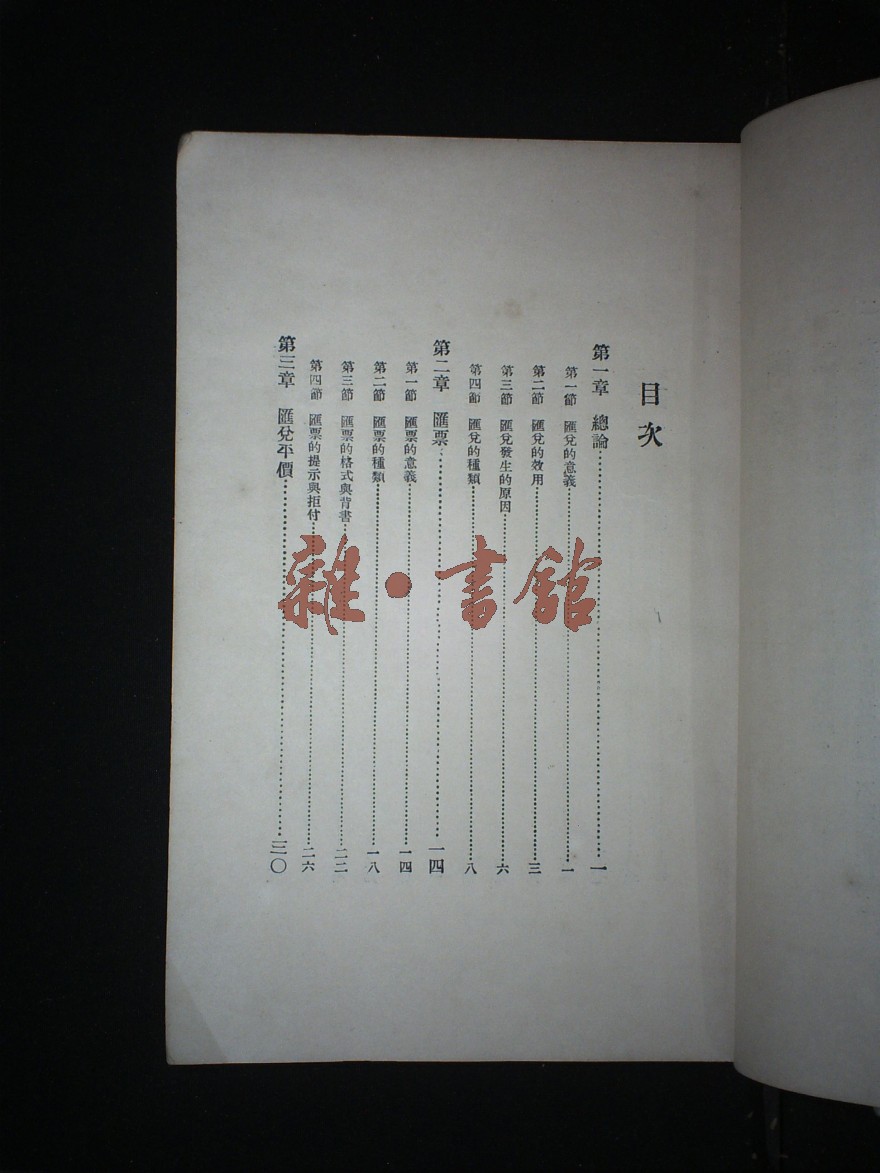 目次
第一章 總論……一
第一節 匯兌的意義……一
第二節 匯兌的效用……三
第三節 匯兌發生的原因……六
第四節 匯兌的種類……八
第二章 匯票……一四
第一節 匯票的意義……一四
第二節 匯票的種類……一八
第三節 匯票的格式與背書……二二
第四節 匯票的提示與拒付……二六
第三章 匯兌平價……三〇
雜·書館